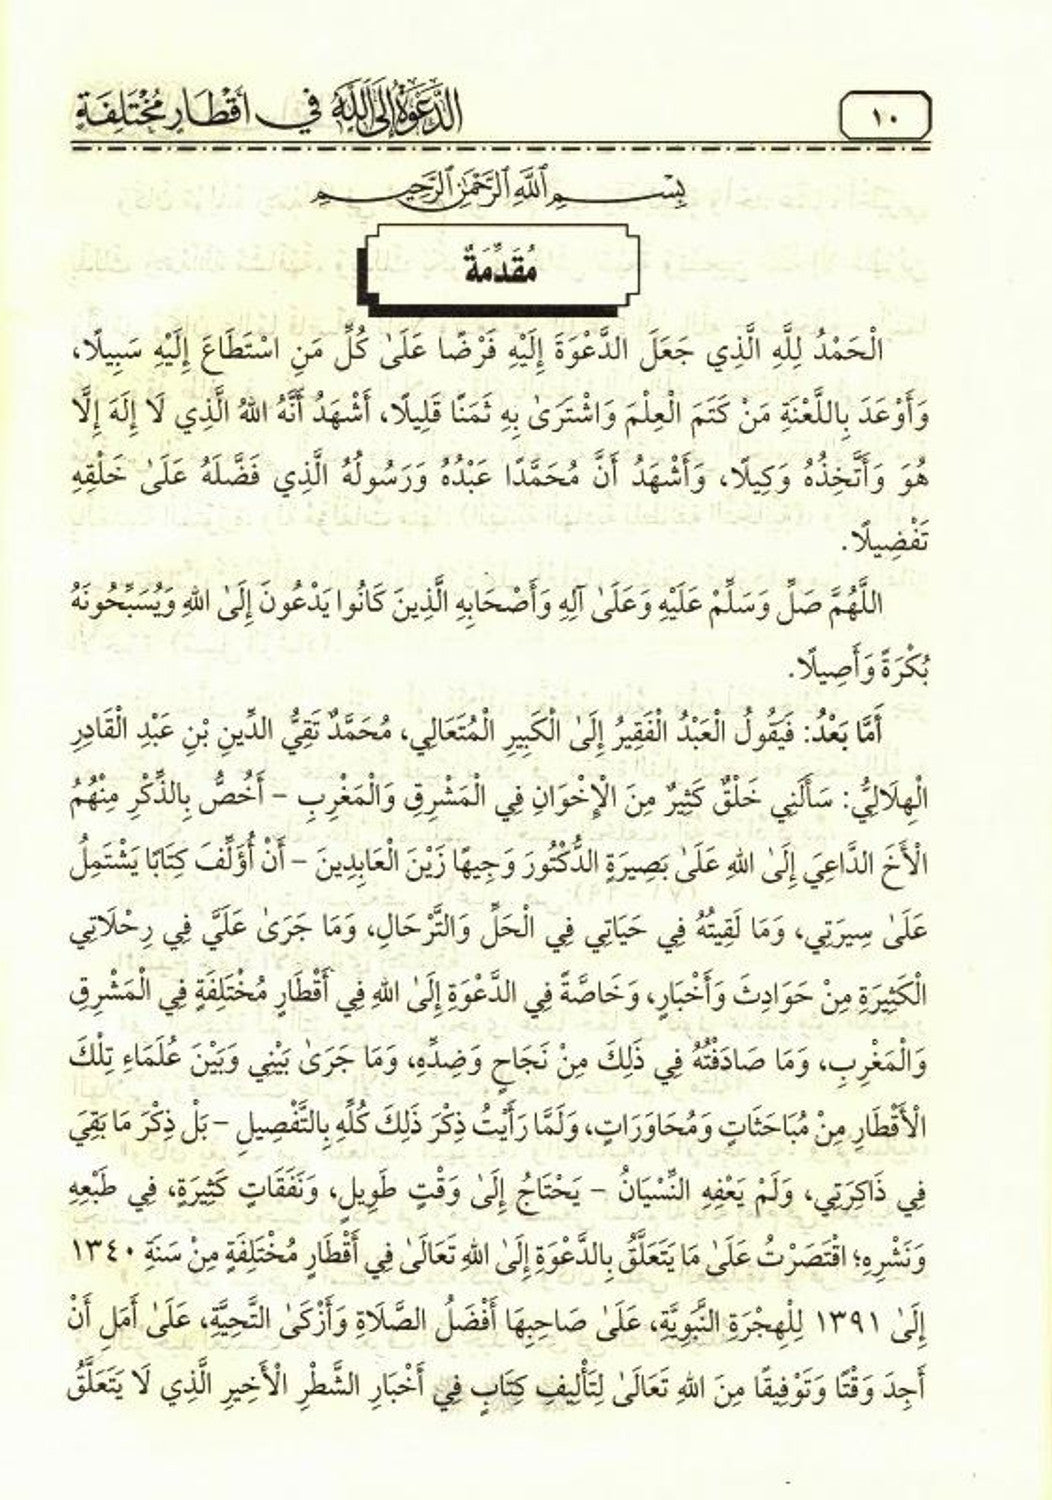 ١٠
الدَّعْوَةُ إِلَى اللَّهِ فِي أَقْطَارٍ مُخْتَلِفَةٍ
بِسْمِ ٱللَّهِ ٱلرَّحْمَٰنِ ٱلرَّحِيمِ
مُقَدِّمَةٌ
الْحَمْدُ لِلَّهِ الَّذِي جَعَلَ الدَّعْوَةَ إِلَيْهِ فَرْضًا عَلَىٰ كُلِّ مَنِ اسْتَطَاعَ إِلَيْهِ سَبِيلًا،
وَأَوْعَدَ بِاللَّعْنَةِ مَنْ كَتَمَ الْعِلْمَ وَاشْتَرَىٰ بِهِ ثَمَنًا قَلِيلًا، أَشْهَدُ أَنَّهُ اللهُ الَّذِي لَا إِلَهَ إِلَّا
هُوَ وَأَتَّخِذُهُ وَكِيلًا، وَأَشْهَدُ أَنَّ مُحَمَّدًا عَبْدُهُ وَرَسُولُهُ الَّذِي فَضَّلَهُ عَلَىٰ خَلْقِهِ
تَفْضِيلًا.
اللَّهُمَّ صَلِّ وَسَلِّمْ عَلَيْهِ وَعَلَىٰ آلِهِ وَأَصْحَابِهِ الَّذِينَ كَانُوا يَدْعُونَ إِلَىٰ اللهِ وَيُسَبِّحُونَهُ
بُكْرَةً وَأَصِيلًا.
أَمَّا بَعْدُ: فَيَقُولُ الْعَبْدُ الْفَقِيرُ إِلَىٰ الْكَبِيرِ الْمُتَعَالِي، مُحَمَّدٌ تَقِيُّ الدِّينِ بْنِ عَبْدِ الْقَادِرِ
الْهِلَالِيُّ: سَأَلَنِي خَلْقٌ كَثِيرٌ مِنَ الْإِخْوَانِ فِي الْمَشْرِقِ وَالْمَغْرِبِ – أَخُصُّ بِالذِّكْرِ مِنْهُمُ
الْأَخَ الدَّاعِيَ إِلَىٰ اللهِ عَلَىٰ بَصِيرَةٍ الدُّكْتُورَ وَجِيهًا زَيْنَ الْعَابِدِينَ – أَنْ أُؤَلِّفَ كِتَابًا يَشْتَمِلُ
عَلَىٰ سِيرَتِي، وَمَا لَقِيتُهُ فِي حَيَاتِي فِي الْحَلِّ وَالتَّرْحَالِ، وَمَا جَرَىٰ عَلَيَّ فِي رِحْلَاتِي
الْكَثِيرَةِ مِنْ حَوَادِثَ وَأَخْبَارٍ، وَخَاصَّةً فِي الدَّعْوَةِ إِلَىٰ اللهِ فِي أَقْطَارٍ مُخْتَلِفَةٍ فِي الْمَشْرِقِ
وَالْمَغْرِبِ، وَمَا صَادَفْتُهُ فِي ذَلِكَ مِنْ نَجَاحٍ وَضِدِّهِ، وَمَا جَرَىٰ بَيْنِي وَبَيْنَ عُلَمَاءِ تِلْكَ
الْأَقْطَارِ مِنْ مُبَاحَثَاتٍ وَمُحَاوَرَاتٍ، وَلَمَّا رَأَيْتُ ذِكْرَ ذَلِكَ كُلِّهِ بِالتَّفْصِيلِ – بَلْ ذِكْرَ مَا بَقِيَ
فِي ذَاكِرَتِي، وَلَمْ يَعْفِهِ النِّسْيَانُ – يَحْتَاجُ إِلَىٰ وَقْتٍ طَوِيلٍ، وَنَفَقَاتٍ كَثِيرَةٍ، فِي طَبْعِهِ
وَنَشْرِهِ؛ اقْتَصَرْتُ عَلَىٰ مَا يَتَعَلَّقُ بِالدَّعْوَةِ إِلَىٰ اللهِ تَعَالَىٰ فِي أَقْطَارٍ مُخْتَلِفَةٍ مِنْ سَنَةِ ١٣٤٠
إِلَىٰ ١٣٩١ لِلْهِجْرَةِ النَّبَوِيَّةِ، عَلَىٰ صَاحِبِهَا أَفْضَلُ الصَّلَاةِ وَأَزْكَىٰ التَّحِيَّةِ، عَلَىٰ أَمَلِ أَنْ
أَجِدَ وَقْتًا وَتَوْفِيقًا مِنَ اللهِ تَعَالَىٰ لِتَأْلِيفِ كِتَابٍ فِي أَخْبَارِ الشَّطْرِ الْأَخِيرِ الَّذِي لَا يَتَعَلَّقُ